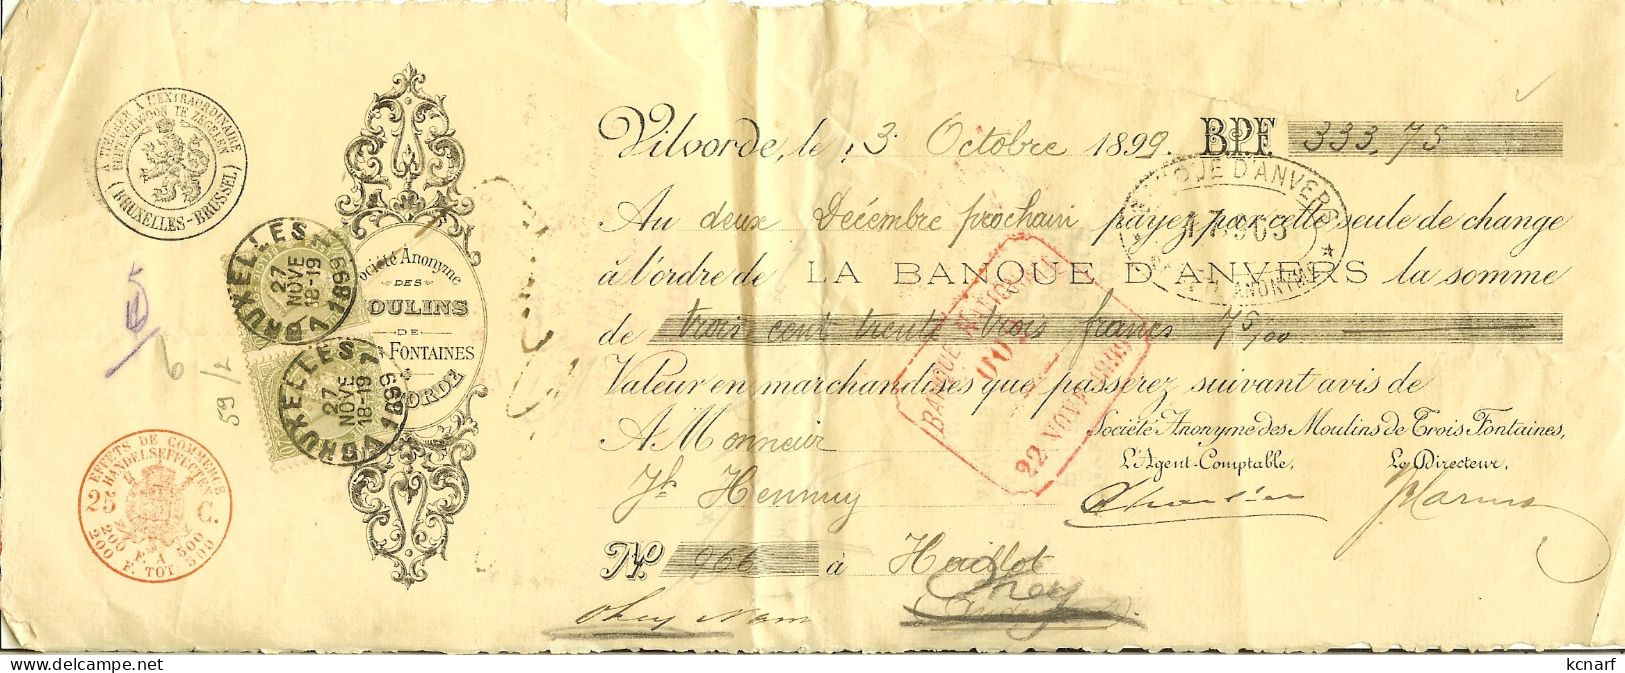 A TIMBRER À L'EXTRAORDINAIRE
BUITENGEWOON TE ZEGELEN
(BRUXELLES-BRUSSEL)
BRUXELLES
27
NOVE
18-19
1899
BRUXELLES 1
27
NOVE
18-19
1899
Société Anonyme
DES
MOULINS
DE
FONTAINES
VORDE
59/2
6
EFFETS DE COMMERCE
HANDELSEFFECTEN
25 C.
200 F. A 500
200 F. TOT 500
Vilvorde, le 3 Octobre 1899. B.P.F. 333,75
Au deux Décembre prochain payez par cette seule de change
à l'ordre de LA BANQUE D'ANVERS la somme
de trois cent trente trois francs 75/00
Valeur en marchandises que passerez suivant avis de
A Monsieur
Société Anonyme des Moulins de Trois Fontaines,
L'Agent-Comptable, Le Directeur,
Jh Hennuy
No 966 à Haillot
Ohey
Ohey Nam
BANQUE D'ANVERS
ANONYME
BANQUE NATIONALE
22 NOVEMBRE
kcnarf